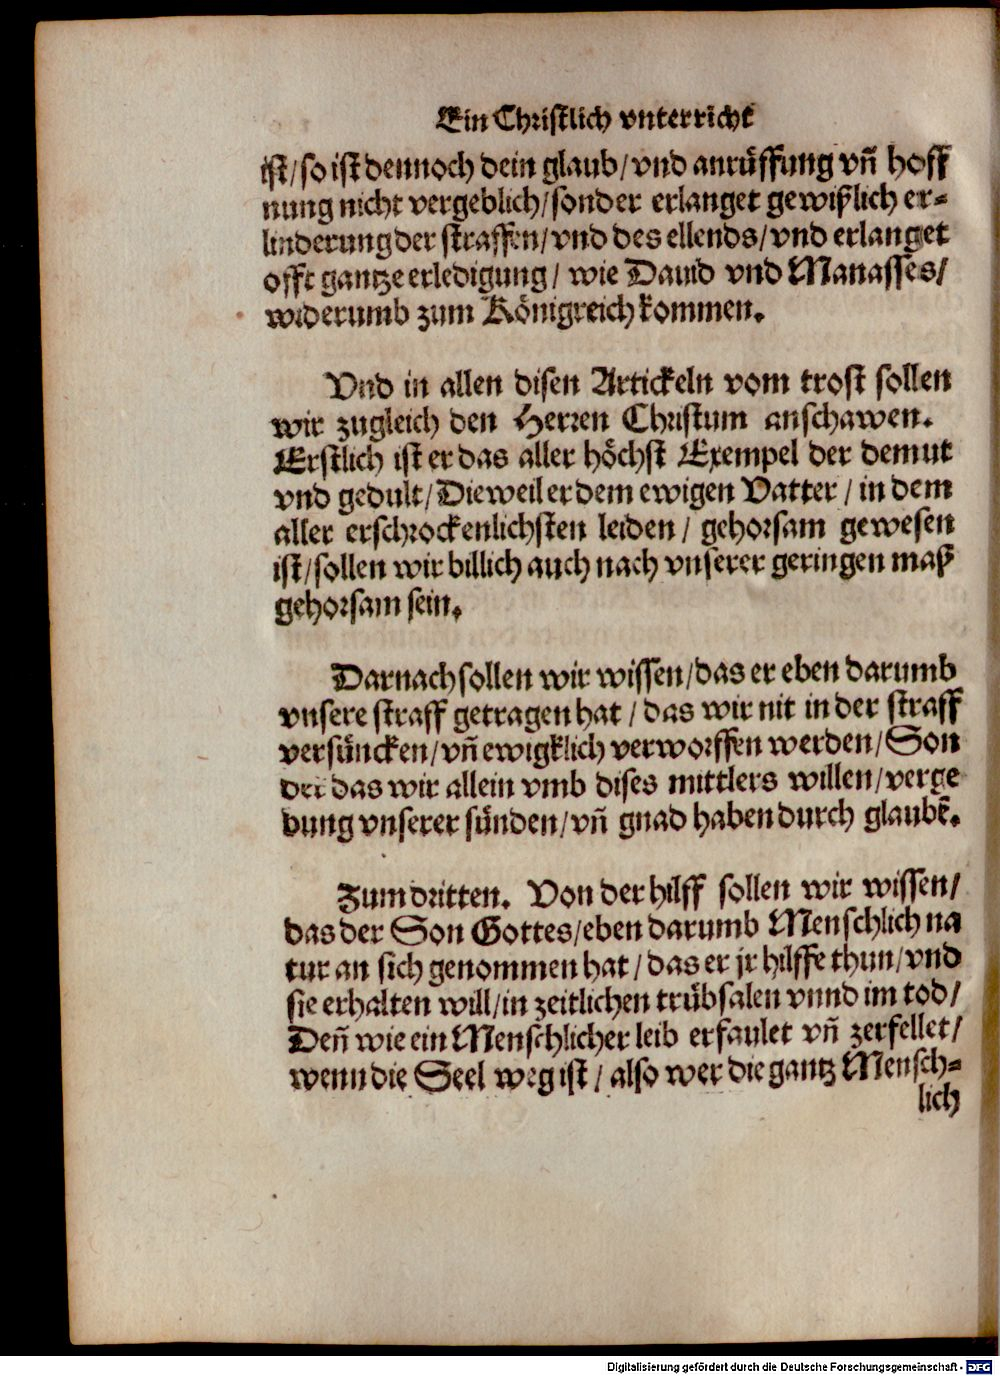 Ein Christlich vnterricht
ist/ so ist dennoch dein glaub/ vnd anrüffung vñ hoff
nung nicht vergeblich/ sonder erlanget gewißlich er-
linderung der straffen/ vnd des ellends/ vnd erlanget
offt gantze erledigung/ wie Dauid vnd Manasses/
widerumb zum Königreich kommen.
Vnd in allen disen Artickeln vom trost sollen
wir zugleich den Herren Christum anschawen.
Erstlich ist er das aller höchst Exempel der demut
vnd gedult/ Dieweil er dem ewigen Vatter/ in dem
aller erschrockenlichsten leiden/ gehorsam gewesen
ist/ sollen wir billich auch nach vnserer geringen maß
gehorsam sein.
Darnach sollen wir wissen/ das er eben darumb
vnsere straff getragen hat/ das wir nit in der straff
versüncken/ vñ ewigklich verworffen werden/ Son
der das wir allein vmb dises mittlers willen/ verge
bung vnserer sünden/ vñ gnad haben durch glaubẽ.
Zum dritten. Von der hilff sollen wir wissen/
das der Son Gottes/ eben darumb Menschlich na
tur an sich genommen hat/ das er jr hilffe thun/ vnd
sie erhalten will/ in zeitlichen trübsalen vnnd im tod/
Deñ wie ein Menschlicher leib erfaulet vñ zerfellet/
wenn die Seel weg ist/ also wer die gantz Mensch-
lich
Digitalisierung gefördert durch die Deutsche Forschungsgemeinschaft - DFG